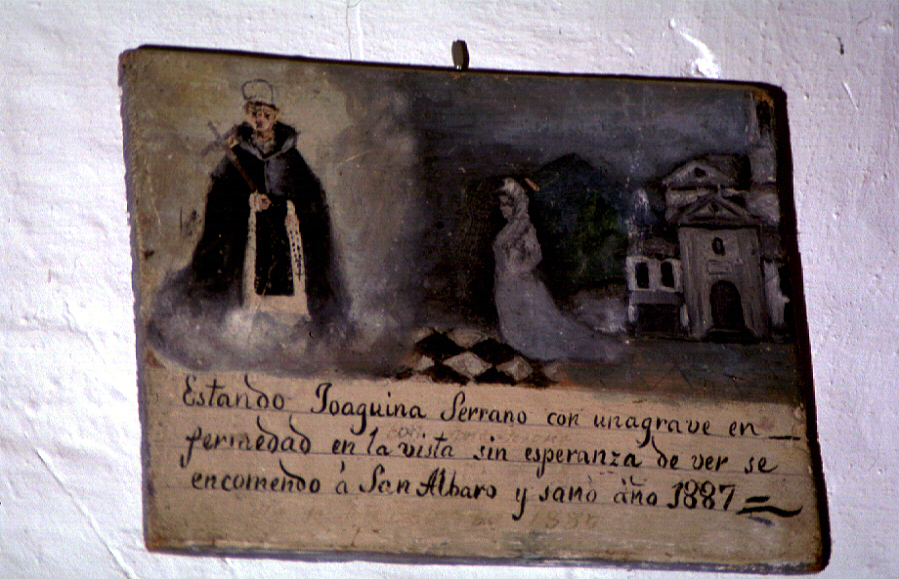 Estando Joaquina Serrano con unagrave en_
fermedad en la vista sin esperanza de ver se
encomendo à San Albaro y sanò año 1887